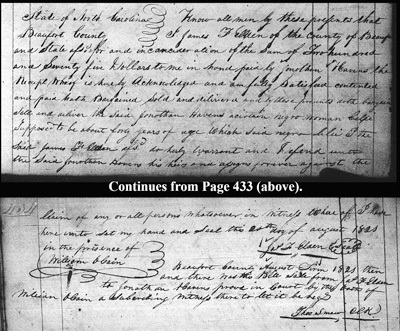 State of North Carolina Know all men by these presents that
Beaufort County I James F Elden of the County of Beauf
and State afsd for and in consideration of the Sum of Two hundred
and Seventy five Dollars to me in hand paid by Jonathan Havens the
Receipt Whereof is hereby Acknowledged and am fully Satisfied contented
and paid hath Bargained Sold and delivered and by these presents doth bargain
Sell and deliver the Said Jonathan Havens a certain negro woman
Suppose to be about forty years of age Which said negro I the
Said James F Elden do hereby warrant and defend unto
the Said Jonathan Havens his heirs and assigns forever against the
Continues from Page 433 (above).
434
Claim of any or all persons Whatsoever in Witness Whereof I have
here unto Set my hand and Seal this day of august 1821
in the presence of Jas F Elden Seal
William OCain
Beaufort County August Term 1821 then
and there was this Bill Sale from J F Elden
to Jonathan Havens proved in Court by the Oath of
William OCain a Subscribing Witness there to let it be regd
Thos Smaw Clk